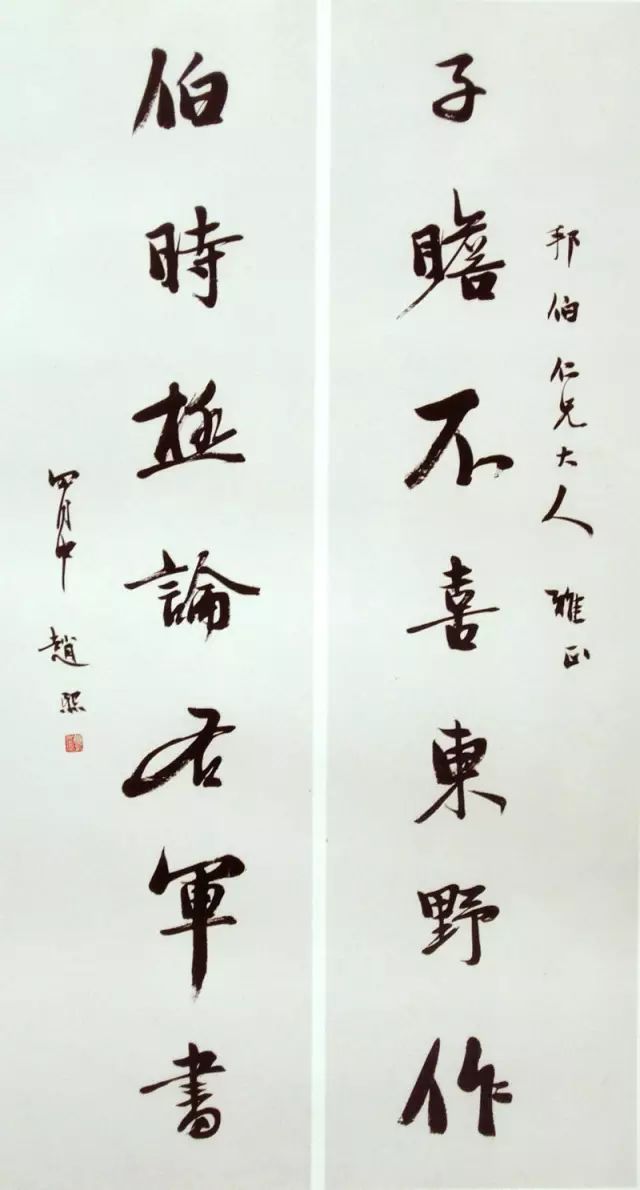 邦伯仁兄大人 雅正
子瞻不喜東野作
伯時極論右軍書
四月中 趙熙